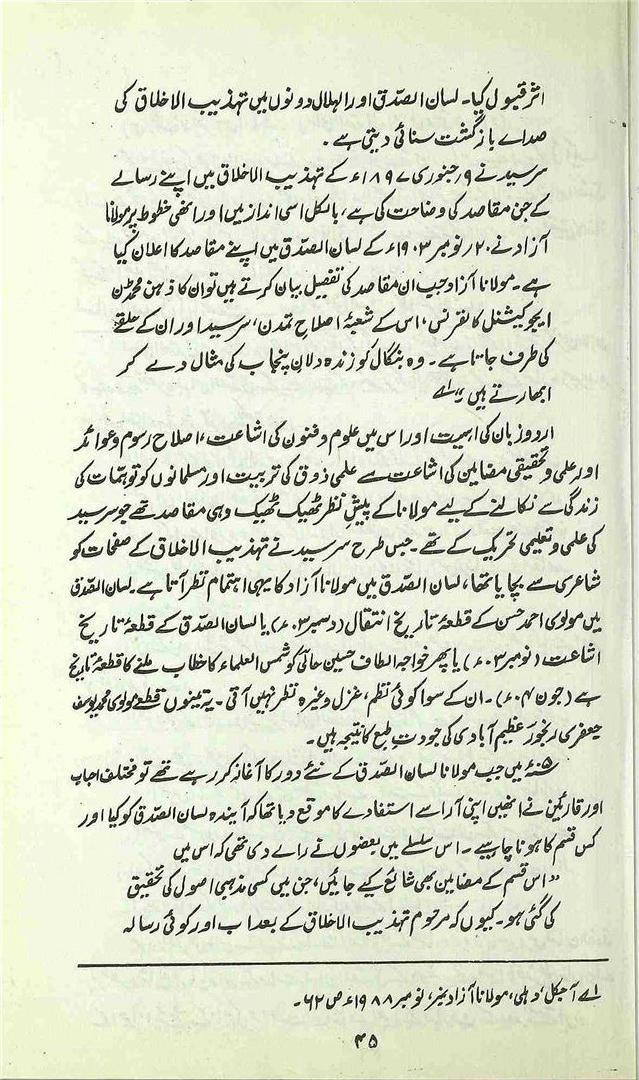 اثر قبول کیا۔ لسان الصّدق اور الہلال دونوں میں تہذیب الاخلاق کی
صداے بازگشت سنائی دیتی ہے۔
سرسید نے ۱۹؍جنوری ۱۸۹۷ء کے تہذیب الاخلاق میں اپنے رسالے
کے جن مقاصد کی وضاحت کی ہے، بالکل اسی انداز میں اور انھی خطوط پر مولانا
آزاد نے ۲۰؍نومبر ۱۹۰۳ء کے لسان الصّدق میں اپنے مقاصد کا اعلان کیا
ہے۔ مولانا آزاد جب ان مقاصد کی تفصیل بیان کرتے ہیں تو ان کا ذہن محمڈن
ایجوکیشنل کانفرنس، اس کے شعبۂ اصلاحِ تمدن، سرسید اور ان کے حلقے
کی طرف جاتا ہے۔ وہ بنگال کو زندہ دلانِ پنجاب کی مثال دے کر
ابھارتے ہیں۔“ ۱ے
اردو زبان کی اہمیت اور اس میں علوم و فنون کی اشاعت، اصلاح رسوم و عوائد
اور علمی و تحقیقی مضامین کی اشاعت سے علمی ذوق کی تربیت اور مسلمانوں کو توہمات کی
زندگی سے نکالنے کے لیے مولانا کے پیشِ نظر ٹھیک ٹھیک وہی مقاصد تھے جو سرسید
کی علمی و تعلیمی تحریک کے تھے۔ جس طرح سرسید نے تہذیب الاخلاق کے صفحات کو
شاعری سے بچایا تھا، لسان الصّدق میں مولانا آزاد کا یہی اہتمام نظر آتا ہے۔ لسان الصّدق
میں مولوی احمد حسن کے قطعۂ تاریخ انتقال (دسمبر ۰۳ء) یا لسان الصّدق کے قطعۂ تاریخ
اشاعت (نومبر ۰۳ء) یا پھر خواجہ الطاف حسین حالی کو شمس العلماء کا خطاب ملنے کا قطعۂ تاریخ
ہے (جون ۰۴ء)۔ ان کے سوا کوئی نظم، غزل وغیرہ نظر نہیں آتی۔ یہ تینوں قطعے مولوی محمد یوسف
جعفری رنجور عظیم آبادی کی جودتِ طبع کا نتیجہ ہیں۔
۰۵ء میں جب مولانا لسان الصّدق کے نئے دور کا آغاز کر رہے تھے تو مختلف احباب
اور قارئین نے انھیں اپنی آرا سے استفادے کا موقع دیا تھا کہ آیندہ لسان الصّدق کو کیا اور
کس قسم کا ہونا چاہیے۔ اس سلسلے میں بعضوں نے راے دی تھی کہ اس میں
”اس قسم کے مضامین بھی شائع کیے جائیں، جن میں کسی مذہبی اصول کی تحقیق
کی گئی ہو۔ کیوں کہ مرحوم تہذیب الاخلاق کے بعد اب اور کوئی رسالہ
۱ے آجکل، دہلی، مولانا آزاد نمبر، نومبر ۱۹۸۸ء ص ۶۲۔
۴۵